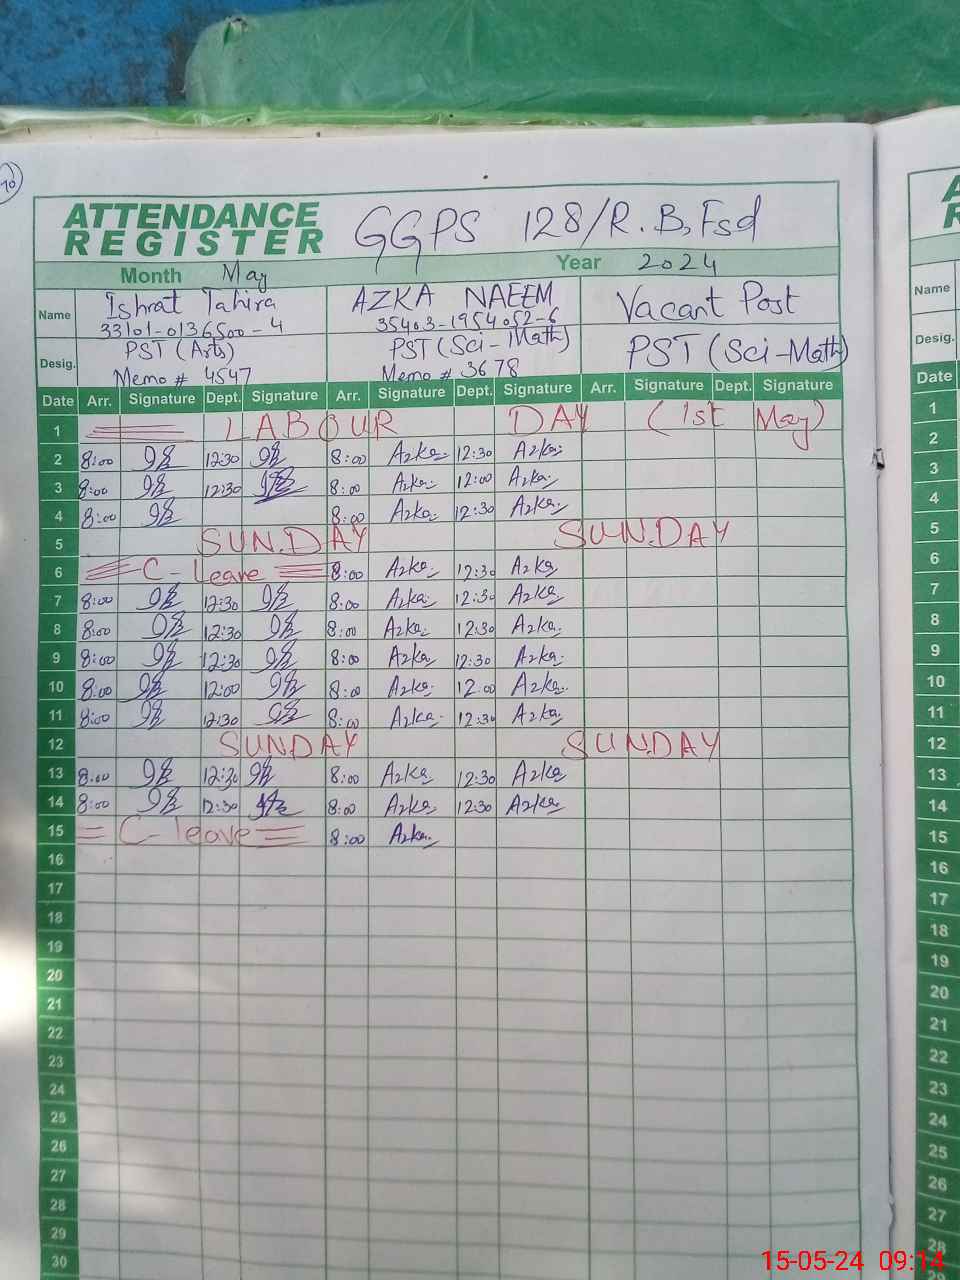 10
ATTENDANCE
REGISTER
GGPS 128/R.B, Fsd
Month May Year 2024
Name Ishrat Tahira AZKA NAEEM Vacant Post
33101-0136500-4 35403-1954052-6
Desig. PST (Arts) PST (Sci-Math) PST (Sci-Math)
Memo # 4547 Memo # 3678
Date Arr. Signature Dept. Signature Arr. Signature Dept. Signature Arr. Signature Dept. Signature
1 LABOUR DAY (1st May)
2 8:00 12:30 8:00 Azka 12:30 Azka
3 8:00 12:30 8:00 Azka 12:00 Azka
4 8:00 8:00 Azka 12:30 Azka
5 SUNDAY SUNDAY
6 C-Leave 8:00 Azka 12:30 Azka
7 8:00 12:30 8:00 Azka 12:30 Azka
8 8:00 12:30 8:00 Azka 12:30 Azka
9 8:00 12:30 8:00 Azka 12:30 Azka
10 8:00 12:00 8:00 Azka 12:00 Azka
11 8:00 12:30 8:00 Azka 12:30 Azka
12 SUNDAY SUNDAY
13 8:00 12:30 8:00 Azka 12:30 Azka
14 8:00 12:30 8:00 Azka 12:30 Azka
15 C-leave 8:00 Azka
16
17
18
19
20
21
22
23
24
25
26
27
28
29
30
A
R
Name
Desig.
Date
1
2
3
4
5
6
7
8
9
10
11
12
13
14
15
16
17
18
19
20
21
22
23
24
25
26
27
28
29
15-05-24 09:14